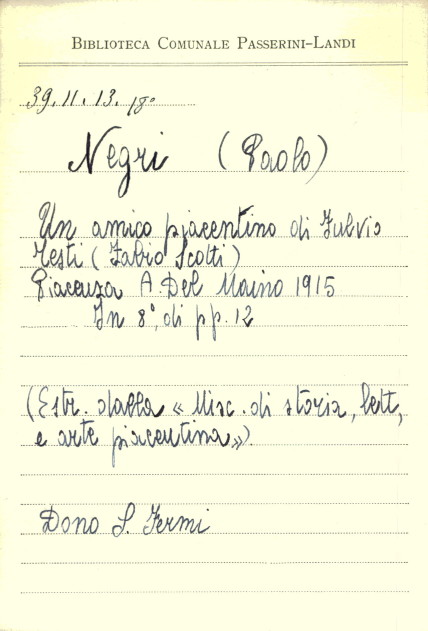 BIBLIOTECA COMUNALE PASSERINI-LANDI
39. II. 13. 18°
Negri (Paolo)
Un amico piacentino di Fulvio
Testi (Fabio Scotti)
Piacenza A. Del Maino 1915
In 8°, di pp. 12
(Estr. dalla « Misc. di storia, lett,
e arte piacentina »).
Dono S. Fermi